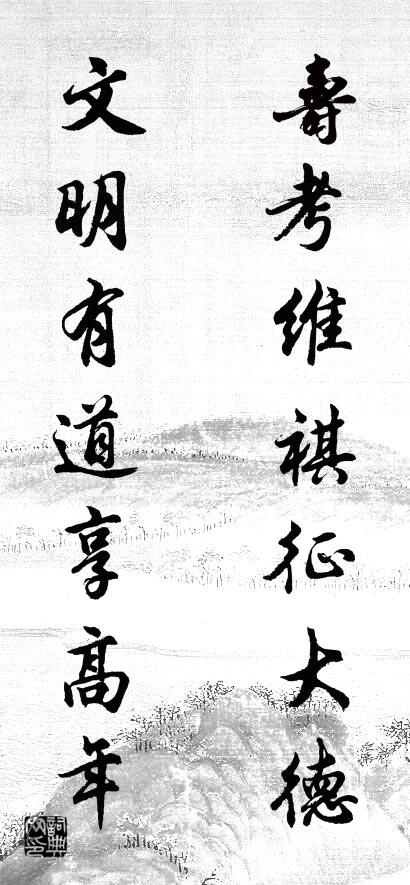 壽考维祺征大德
文明有道享高年